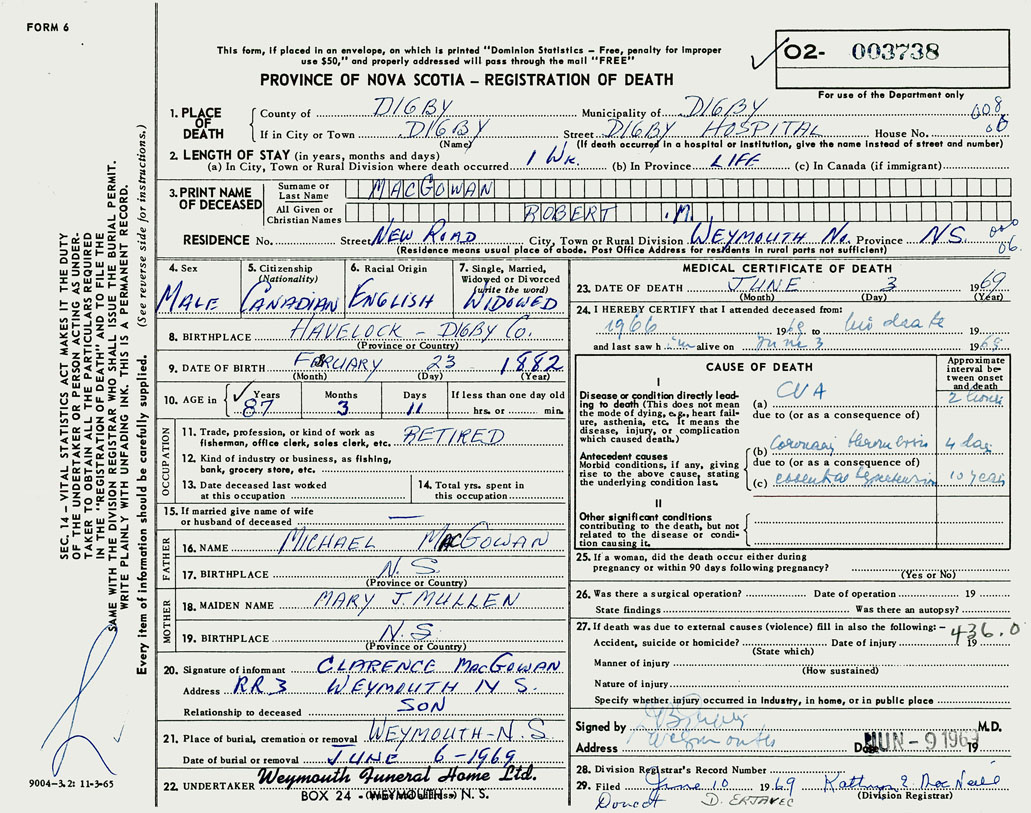 FORM 6
This form, if placed in an envelope, on which is printed "Dominion Statistics – Free, penalty for improper
use $50," and properly addressed will pass through the mail "FREE"
PROVINCE OF NOVA SCOTIA – REGISTRATION OF DEATH
O2- 003738
For use of the Department only
1. PLACE OF DEATH
County of DIGBY Municipality of DIGBY 008
If in City or Town DIGBY Street DIGBY HOSPITAL House No.
(Name) (If death occurred in a hospital or institution, give the name instead of street and number)
2. LENGTH OF STAY (in years, months and days)
(a) In City, Town or Rural Division where death occurred 1 WK. (b) In Province LIFE (c) In Canada (if immigrant)
3. PRINT NAME OF DECEASED
Surname or Last Name MACGOWAN
All Given or Christian Names ROBERT .M.
RESIDENCE No. Street NEW ROAD City, Town or Rural Division WEYMOUTH No. Province N.S. 06
(Residence means usual place of abode. Post Office Address for residents in rural parts not sufficient)
4. Sex MALE
5. Citizenship (Nationality) CANADIAN
6. Racial Origin ENGLISH
7. Single, Married, Widowed or Divorced (write the word) WIDOWED
8. BIRTHPLACE HAVELOCK – DIGBY Co.
(Province or Country)
9. DATE OF BIRTH 23 1882
(Month) (Day) (Year)
10. AGE in Years 87 Months 3 Days 11 If less than one day old hrs. or min.
OCCUPATION
11. Trade, profession, or kind of work as
fisherman, office clerk, sales clerk, etc. RETIRED
12. Kind of industry or business, as fishing,
bank, grocery store, etc.
13. Date deceased last worked
at this occupation
14. Total yrs. spent in
this occupation
15. If married give name of wife
or husband of deceased —
FATHER
16. NAME MICHAEL MACGOWAN
17. BIRTHPLACE N.S.
(Province or Country)
MOTHER
18. MAIDEN NAME MARY J. MULLEN
19. BIRTHPLACE N.S.
(Province or Country)
20. Signature of informant CLARENCE MACGOWAN
Address RR3 WEYMOUTH N S.
Relationship to deceased SON
21. Place of burial, cremation or removal WEYMOUTH – N.S.
Date of burial or removal JUNE 6 – 1969
22. UNDERTAKER Weymouth Funeral Home Ltd.
BOX 24 - WEYMOUTH - N. S.
MEDICAL CERTIFICATE OF DEATH
23. DATE OF DEATH JUNE 3 1969
(Month) (Day) (Year)
24. I HEREBY CERTIFY that I attended deceased from:
1966 19 to his death 19
and last saw him alive on June 3 1969
CAUSE OF DEATH
Approximate interval between onset and death
I
Disease or condition directly leading to death (This does not mean the mode of dying, e.g., heart failure, asthenia, etc. It means the disease, injury, or complication which caused death.)
(a) CVA 2 hours
due to (or as a consequence of)
Antecedent causes
Morbid conditions, if any, giving rise to the above cause, stating the underlying condition last.
(b) Coronary thrombosis 4 day
due to (or as a consequence of)
(c) essential hypertension 10 years
II
Other significant conditions
contributing to the death, but not related to the disease or condition causing it.
25. If a woman, did the death occur either during
pregnancy or within 90 days following pregnancy?
(Yes or No)
26. Was there a surgical operation? Date of operation 19
State findings Was there an autopsy?
27. If death was due to external causes (violence) fill in also the following: – 436.0
Accident, suicide or homicide? Date of injury 19
(State which)
Manner of injury
(How sustained)
Nature of injury
Specify whether injury occurred in industry, in home, or in public place
Signed by M.D.
Address Weymouth Date JUN - 9 1969 19
28. Division Registrar's Record Number
29. Filed June 10 1969 Kathryn E. MacNeill
(Division Registrar)
Doucet D. ERJAVEC
SEC. 14 – VITAL STATISTICS ACT MAKES IT THE DUTY
OF THE UNDERTAKER OR PERSON ACTING AS UNDER-
TAKER TO OBTAIN ALL THE PARTICULARS REQUIRED
IN THE "REGISTRATION OF DEATH" AND TO FILE THE
SAME WITH THE DIVISION REGISTRAR WHO SHALL ISSUE THE BURIAL PERMIT.
WRITE PLAINLY WITH UNFADING INK. THIS IS A PERMANENT RECORD.
Every item of information should be carefully supplied. (See reverse side for instructions.)
9004-3.2: 11-3-65